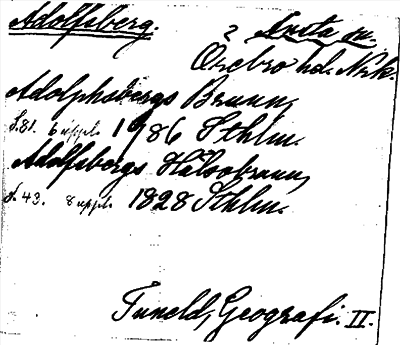 Adolfsberg. ? Knista sn.
Örebro hd. Nrk.
Adolphsbergs Brunn,
S. 81. 6 uppl. 1786 Sthlm.
Adolfsbergs Hälsobrunn,
s. 43. 8 uppl. 1828 Sthlm.
Tuneld, Geografi. II.